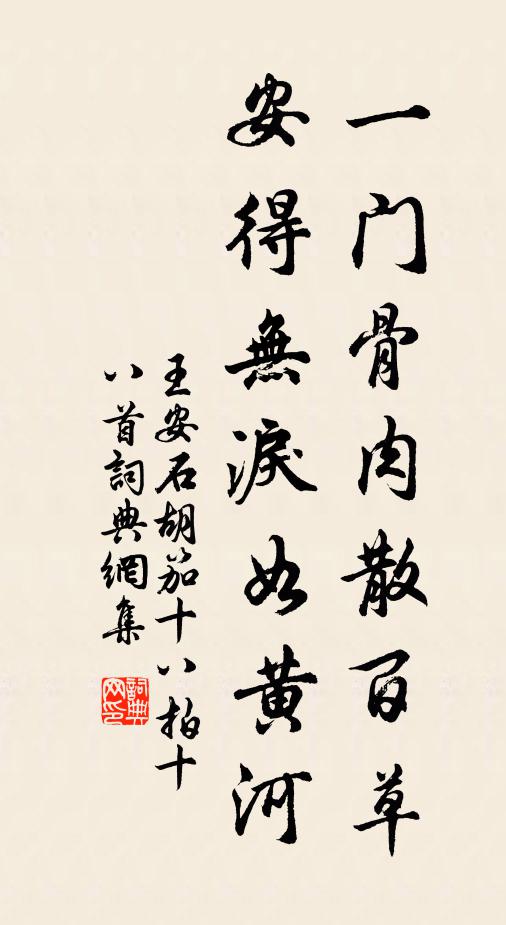 一門骨肉散百草
安得無淚如黃河
王安石胡笳十八拍十
八首詞典網集
詞典网印